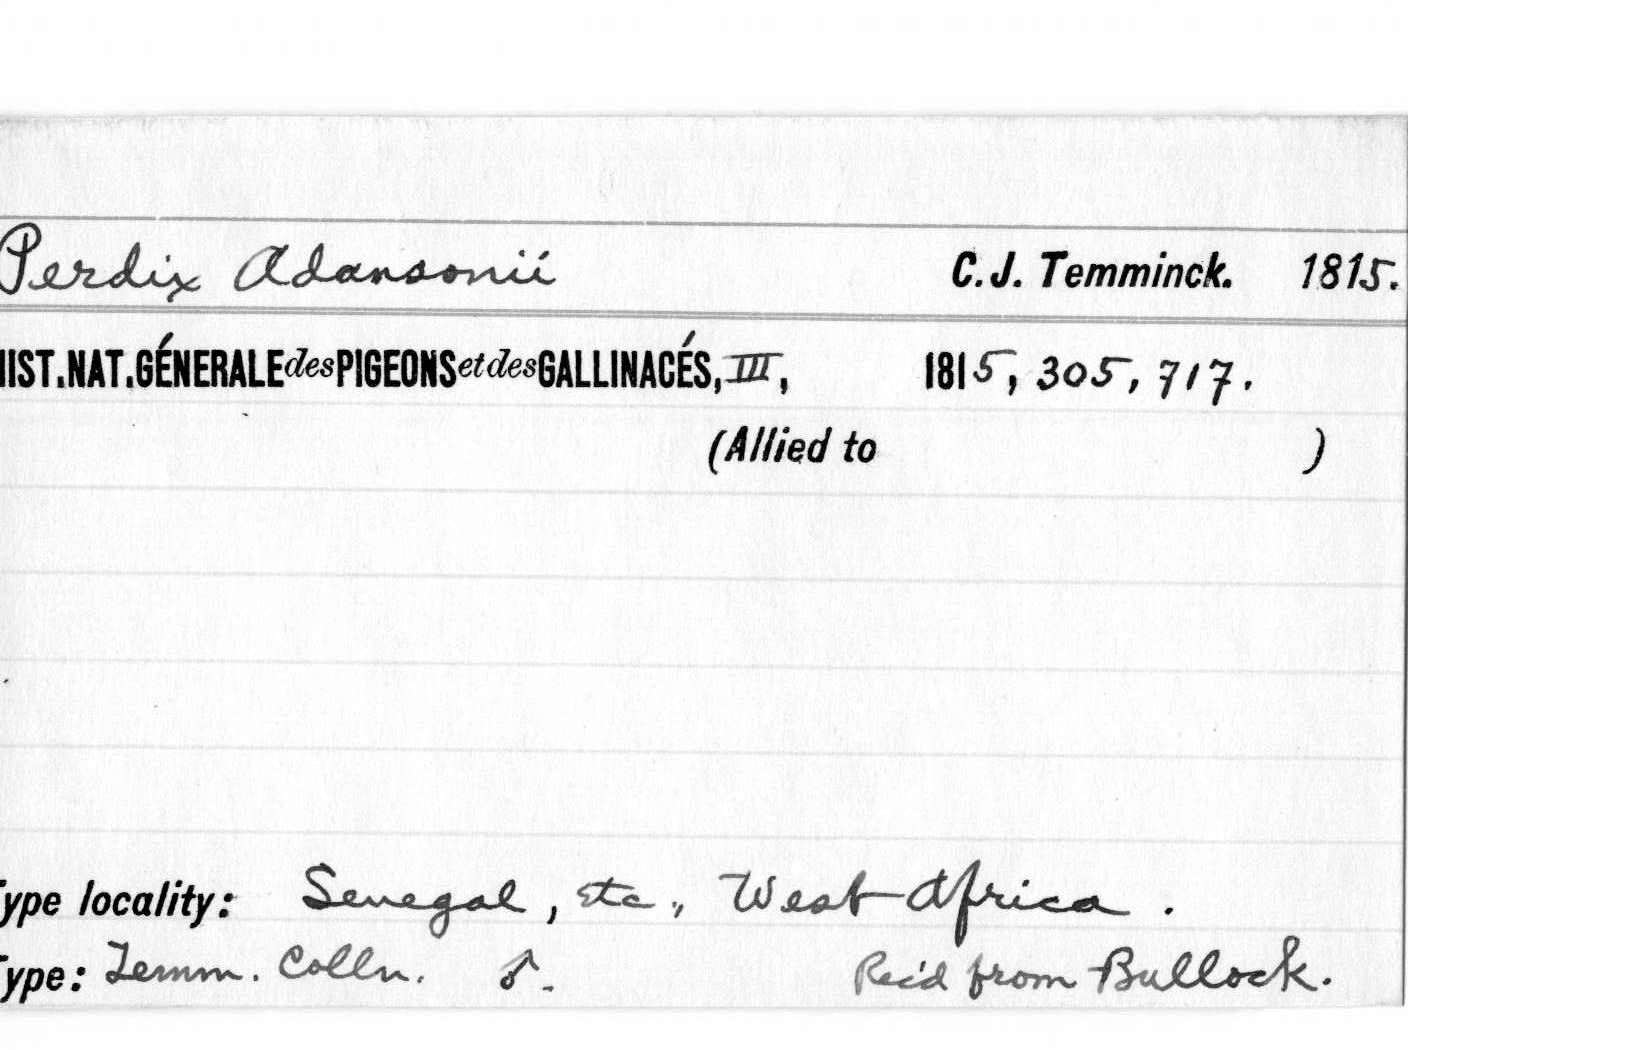 Perdix Adansonii C.J. Temminck. 1815.
HIST.NAT.GÉNERALE des PIGEONS et des GALLINACÉS, III, 1815, 305, 717.
(Allied to )
Type locality: Senegal, etc., West Africa.
Type: Temm. Colln. ♂. Rec'd from Bullock.